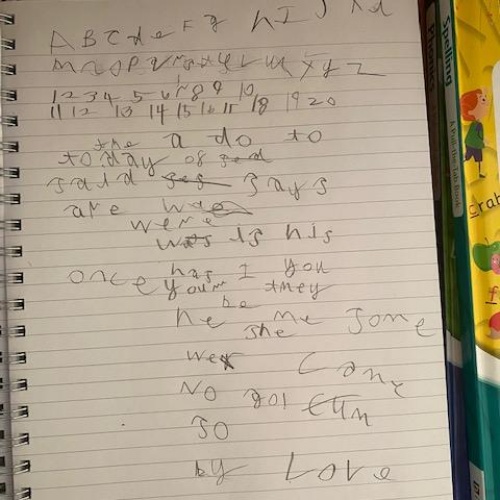 A B C d e F g h I J k l
m n o p q r s t u v w x y z
1 2 3 4 5 6 7 8 9 10
11 12 13 14 15 16 18 19 20
the a do to
today of
said says
are
were
was is his
once has I you
your they
be
he me some
she
we come
No go
so
by Love
Spelling
Phonics
A Pull-the-Tab Book
crab